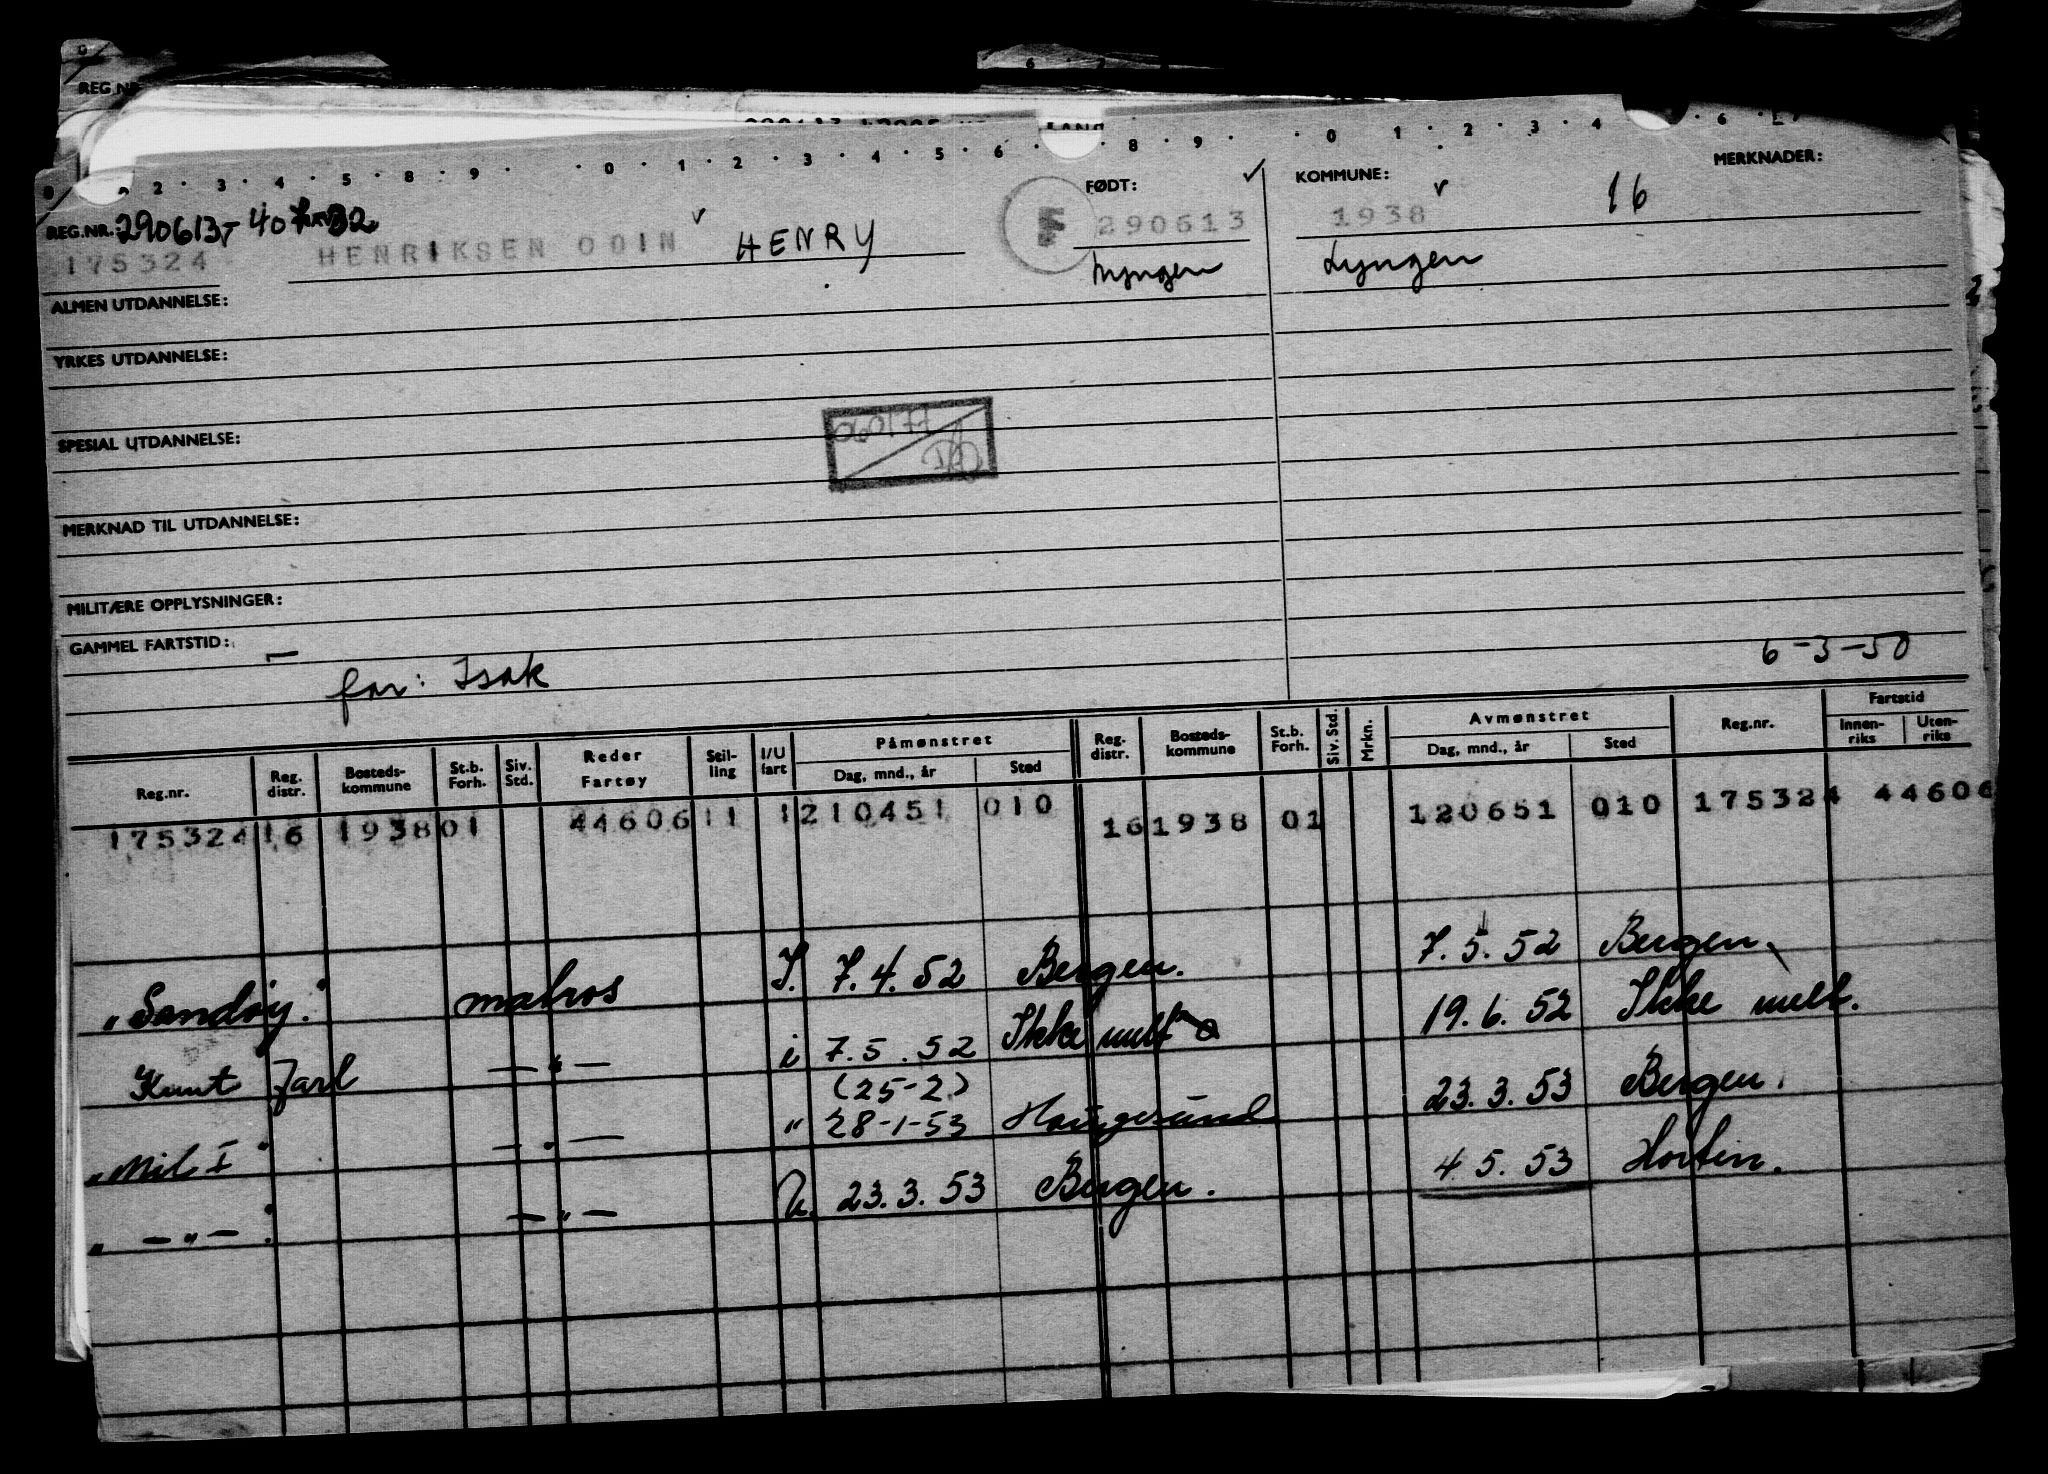 REG.NR.
0 . 1 . 2 . 3 . 4 . 5 . 6 . 8 . 9 . . 0 . 1 . 2 . 3 . 4 . 6
2 . 3 . 4 . 5 . 8 . 9 .
FØDT: KOMMUNE: MERKNADER:
REG.NR. 290613 - 40
175324 HENRIKSEN ODIN HENRY F 290613 1938 16
Lyngen Lyngen
ALMEN UTDANNELSE:
YRKES UTDANNELSE:
060177
SPESIAL UTDANNELSE:
MERKNAD TIL UTDANNELSE:
MILITÆRE OPPLYSNINGER:
GAMMEL FARTSTID: —
far: Isak 6-3-50
Reg.nr. Reg. distr. Bosteds-kommune St.b. Forh. Siv. Std. Reder Fartøy Stil-ling I/U fart Påmønstret Dag, mnd., år Sted Reg. distr. Bosteds-kommune St.b. Forh. Siv. Std. Mrkn. Avmønstret Dag, mnd., år Sted Reg.nr. Fartstid Innen-riks Uten-riks
175324 16 1938 01 44606 11 1 210451 010 16 1938 01 120651 010 175324 44606
"Sandøy." matros I. 7.4.52 Bergen. 7.5.52 Bergen.
Knut Jarl — " — i 7.5.52 Ikke melt 19.6.52 Ikke melt.
(25-2)
"Mil I" — " — " 28-1-53 Haugesund 23.3.53 Bergen.
" — " — " — " — U. 23.3.53 Bergen. 4.5.53 Horten.